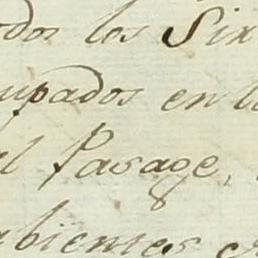 odos los Six
upados en l
l Pasage,
bientes